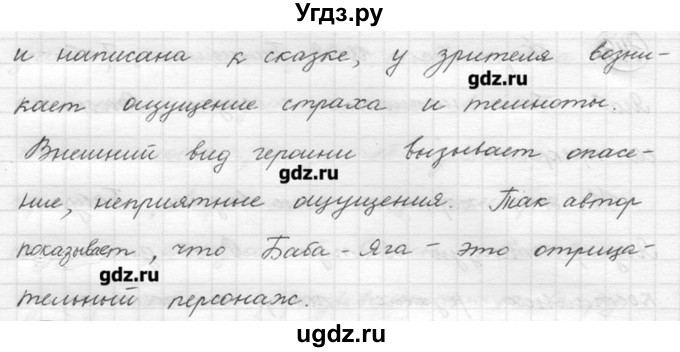 Угдз.ру
и написана к сказке, у зрителя возни-
gdz.ru
кает ощущение страха и темноты.
Внешний вид героини вызывает опасе-
gdz.ru
ние, неприятные ощущения. Так автор
показывает, что Баба-Яга – это отрица-
gdz.ru
тельный персонаж.
ugdz.ru